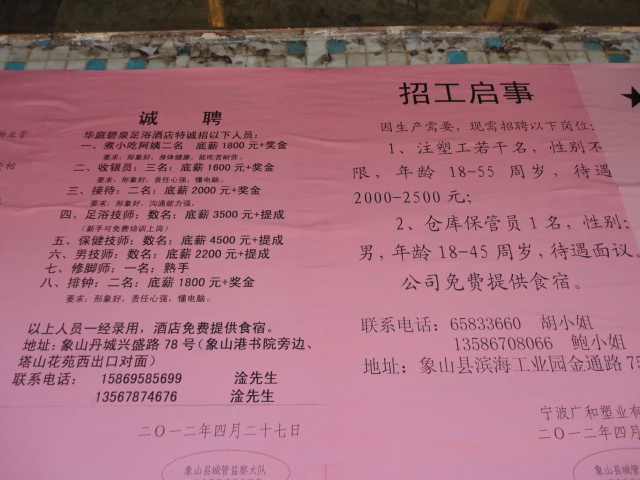 诚 聘
华庭碧泉足浴酒店特诚招以下人员：
一、煮小吃阿姨二名 底薪1800元+奖金
要求：形象好，身体健康，能吃苦耐劳。
二、收银员：三名：底薪1600元+奖金
要求：形象好，责任心强，懂电脑。
三、接待：二名：底薪2000元+奖金
要求：形象好，沟通能力强。
四、足浴技师：数名：底薪3500元+提成
（新手可免费培训上岗）
五、保健技师：数名：底薪4500元+提成
六、男技师：数名：底薪2200元+提成
七、修脚师：一名：熟手
八、排钟：二名：底薪1800元+奖金
要求：形象好，责任心强，懂电脑。
以上人员一经录用，酒店免费提供食宿。
地址：象山丹城兴盛路78号（象山港书院旁边、
塔山花苑西出口对面）
联系电话： 15869585699 淦先生
13567874676 淦先生
二〇一二年四月二十七日
象山县城管监察大队
招工启事
因生产需要，现需招聘以下岗位：
1、注塑工若干名，性别不
限，年龄18-55周岁，待遇
2000-2500元；
2、仓库保管员1名，性别：
男，年龄18-45周岁，待遇面议。
公司免费提供食宿。
联系电话：65833660 胡小姐
13586708066 鲍小姐
地址：象山县滨海工业园金通路75
宁波广和塑业有
二〇一二年四月
象山县城管